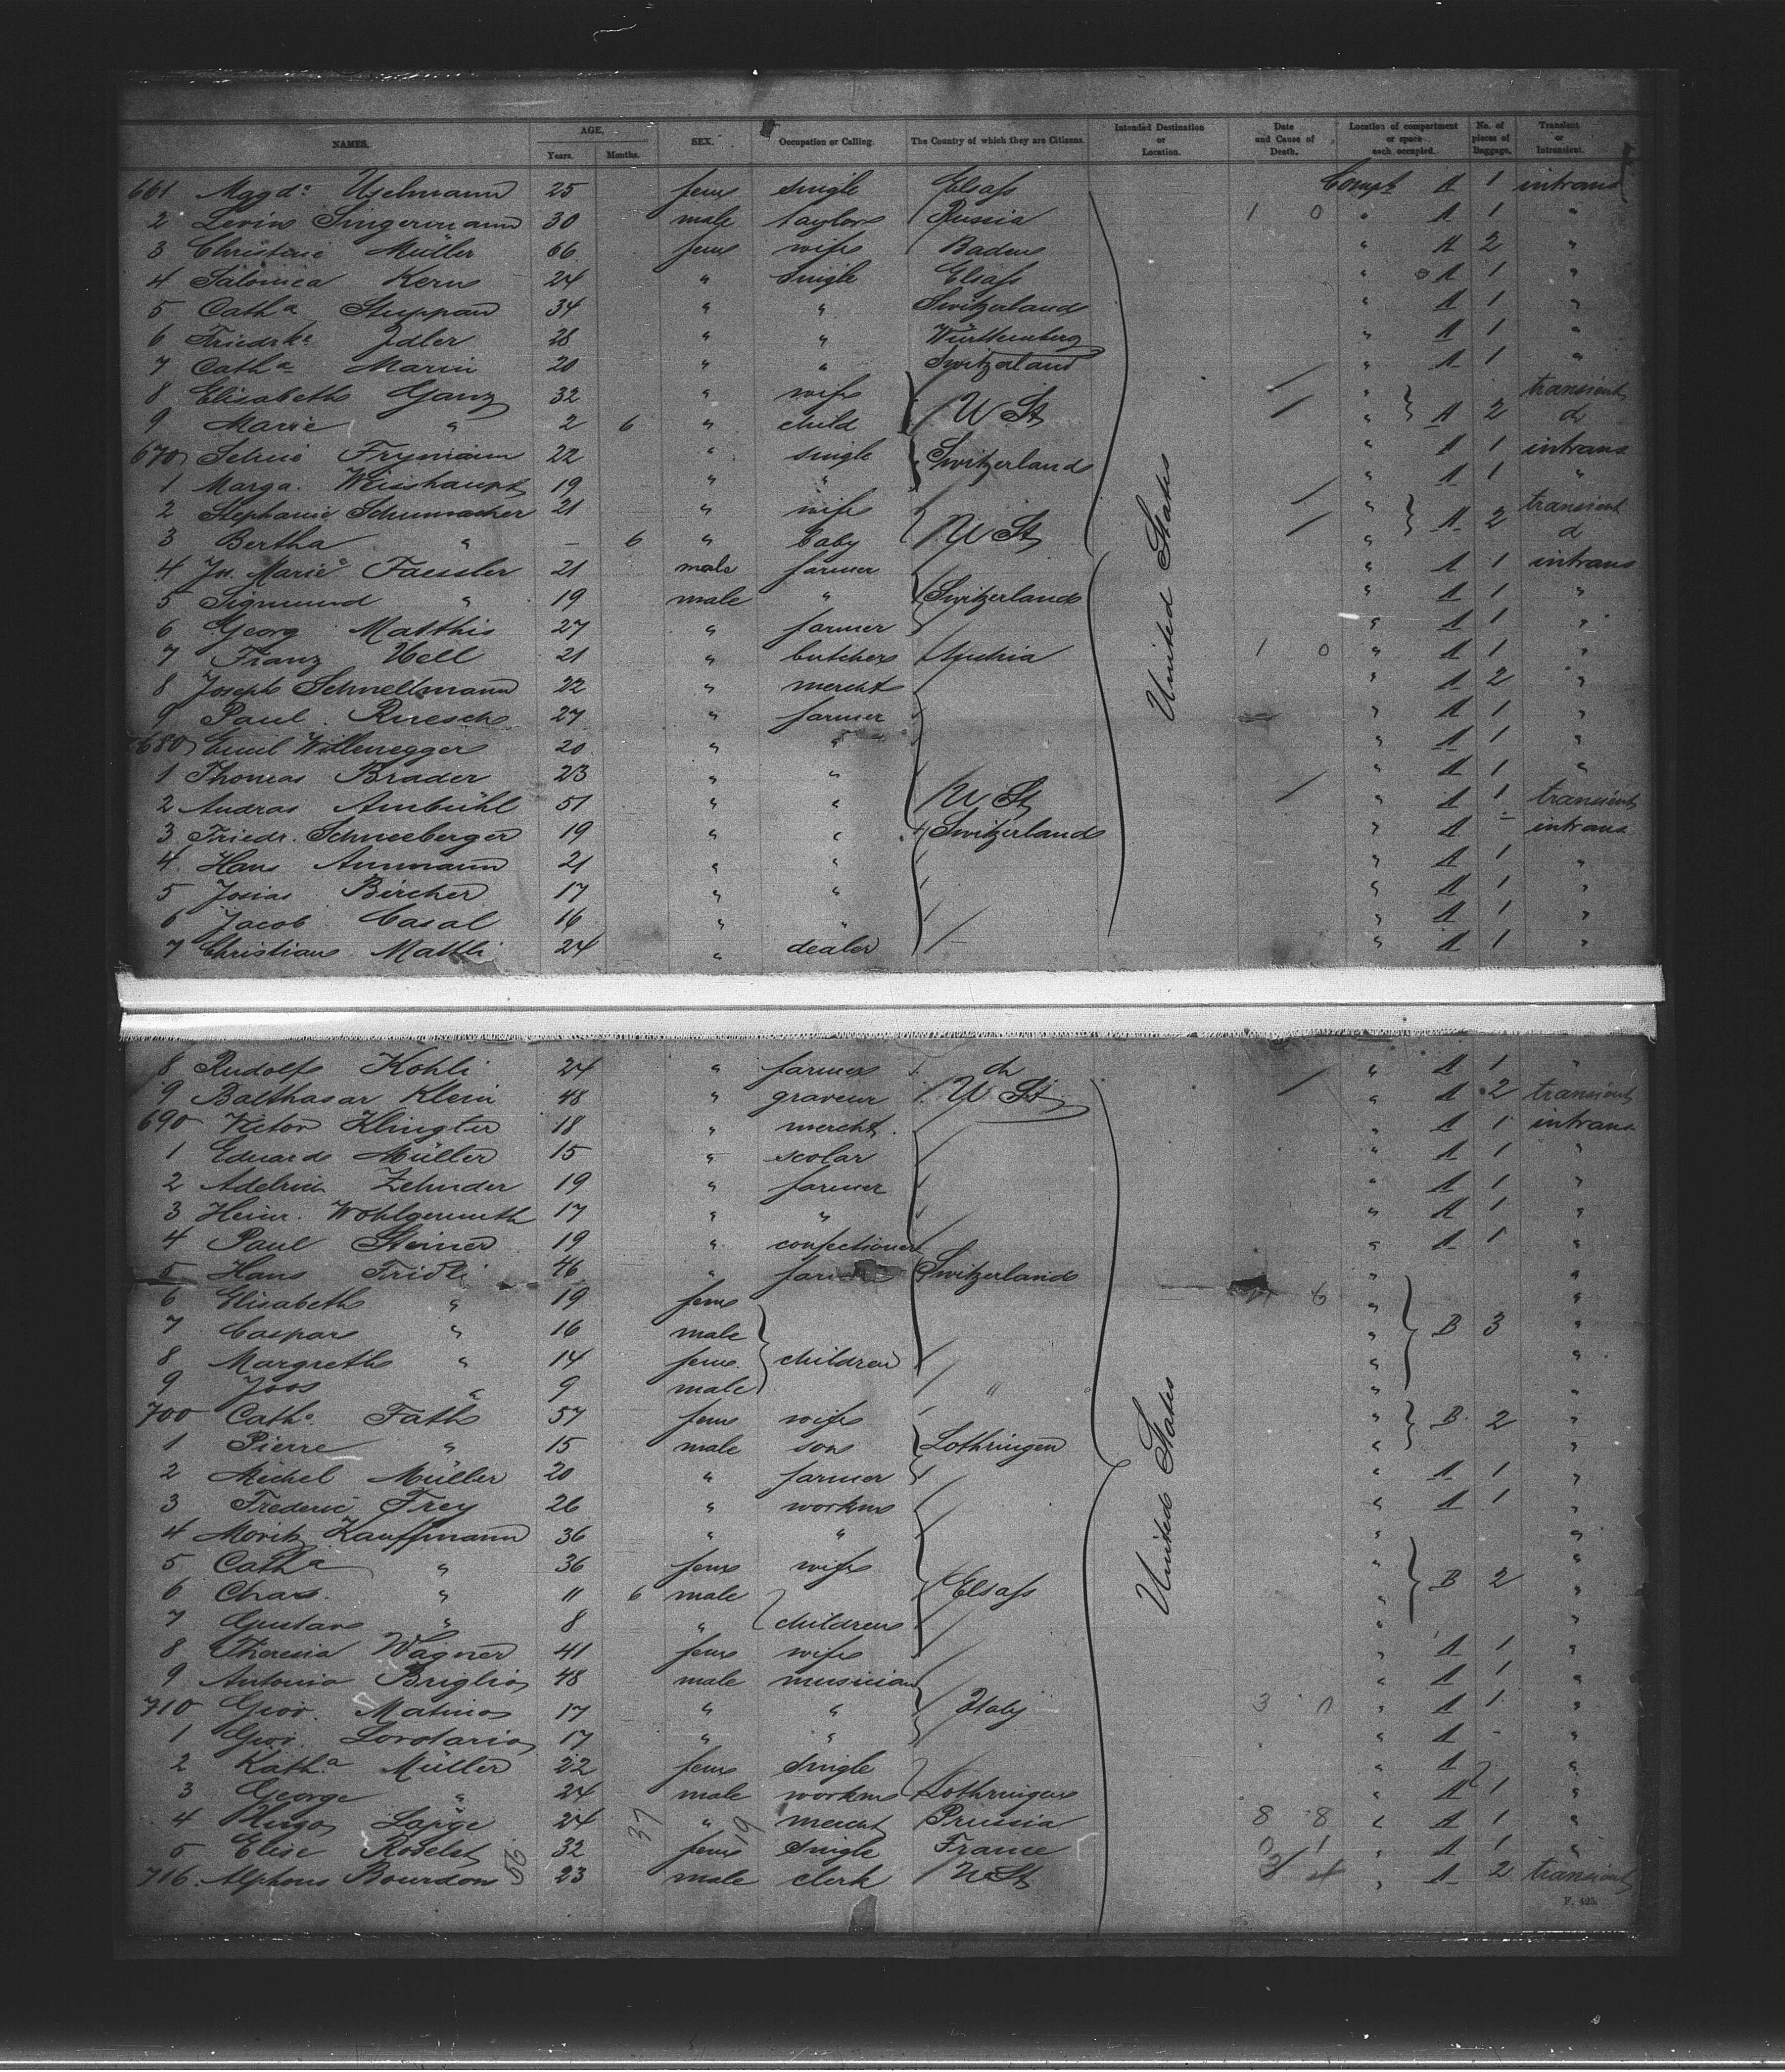 NAMES. AGE. Years. Months. SEX. Occupation or Calling. The Country of which they are Citizens. Intended Destination or Location. Date and Cause of Death. Location of compartment or space each occupied. No. of pieces of Baggage. Transient or Intransient.
661 Magda Uselmann 25 fem single Elsass Compt A 1 intrans
2 Levin Singermann 30 male taylor Russia 1 0 " A 1 "
3 Christine Müller 66 fem wife Baden " A 2 "
4 Salomea Kern 24 " single Elsass " A 1 "
5 Catha Stuppan 34 " " Switzerland " A 1 "
6 Friedrka Idler 28 " " Württemberg " A 1 "
7 Catha Marin 20 " " Switzerland " A 1 "
8 Elisabeth Ganz 32 " wife " transient
9 Marie " 2 6 " child U St " A 2 d
670 Frymann 22 " single Switzerland " A 1 intrans
1 Marga. Weisshaupt 19 " " " A 1 "
2 Stephanie Schumacher 21 " wife " transient
3 Bertha " – 6 " baby U St " A 2 d
4 Jos. Marie Faessler 21 male farmer " A 1 intrans
5 Sigmund " 19 male " Switzerland " A 1 "
6 Georg Matthis 27 " farmer " A 1 "
7 Franz Hell 21 " butcher Austria 1 0 " A 1 "
8 Joseph Schnellmann 22 " mercht " A 2 "
9 Paul Ruesch 27 " farmer " A 1 "
680 Emil Willenegger 20 " " " A 1 "
1 Thomas Brader 23 " " " A 1 "
2 Andras Ambühl 51 " " U St " A 1 transient
3 Friedr. Schneeberger 19 " " Switzerland " A - intrans
4 Hans Ammann 21 " " " A 1 "
5 Josias Bircher 17 " " " A 1 "
6 Jacob Casal 16 " " A 1 "
7 Christian Mattli 24 " dealer " A 1 "
United States
8 Rudolf Kohli 24 " farmer do " A 1 "
9 Balthasar Klein 48 " graveur U St " A 2 transient
690 Victor Klingler 18 " mercht. " A 1 intrans
1 Eduard Müller 15 " scolar " A 1 "
2 Adelrich Zehnder 19 " farmer " A 1 "
3 Heinr. Wohlgemuth 17 " " " A 1 "
4 Paul Steiner 19 " confectioner " A 1 "
5 Hans Fridli 46 " farmer Switzerland " "
6 Elisabeth " 19 fem 6 " "
7 Caspar " 16 male " B 3 "
8 Margreth " 14 fem. children " "
9 Joos " 9 male " " "
700 Catha Fath 57 fem wife " B 2 "
1 Pierre " 15 male son Lothringen " "
2 Michel Müller 20 " farmer " A 1 "
3 Frederic Frey 26 " workm " A 1 "
4 Moritz Kauffmann 36 " " " "
5 Catha " 36 fem wife " "
6 Chars. " 11 6 male Elsass " B 2 "
7 Gustav " 8 " children " "
8 Theresia Wagner 41 fem wife " A 1 "
9 Antonio Briglia 48 male musician " A 1 "
710 Giov. 17 " " Italy 3 0 " A 1 "
1 Giov. 17 " " " A - "
2 Katha Müller 22 fem single " A "
3 George " 24 male workm Lothringen " A 1 "
4 Hugo Lange 24 " mercht Prussia 8 8 " A 1 "
5 Elise 32 fem single France " A 1 "
716. Alphons Bourdon 23 male clerk U St " A 2 transient
United States
56
37
19
F. 425.